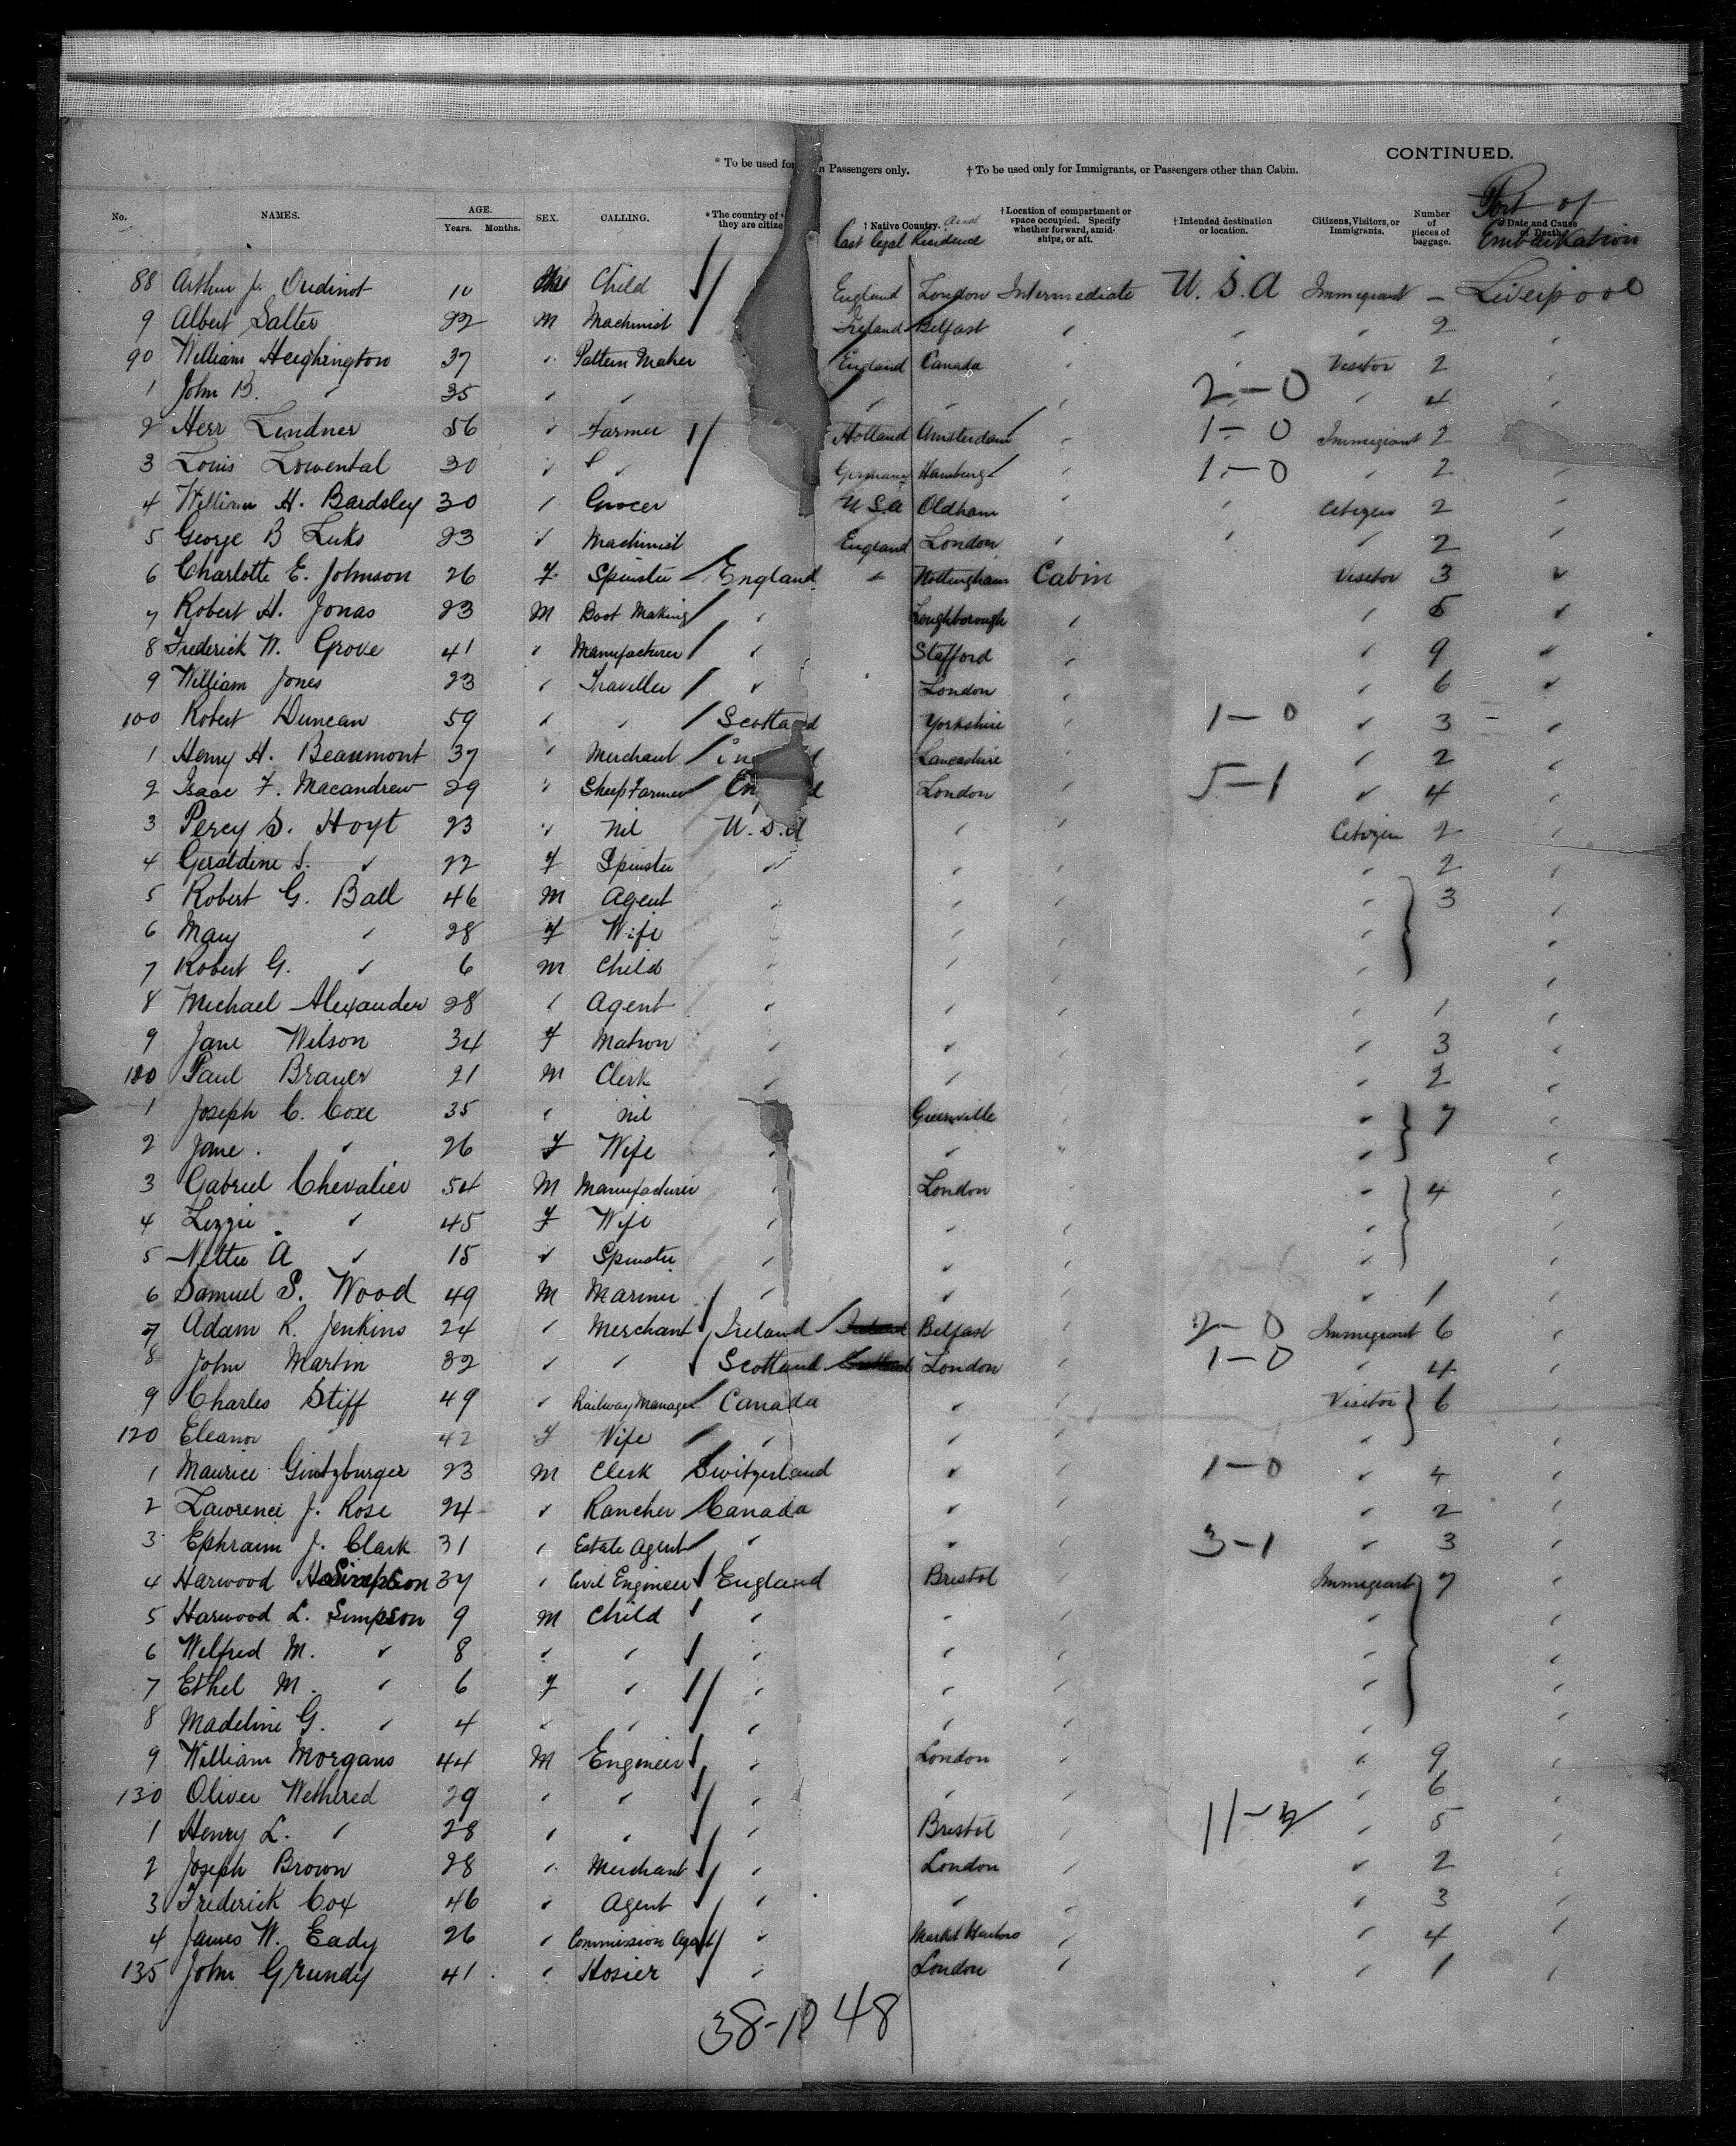 CONTINUED.
* To be used for n Passengers only. † To be used only for Immigrants, or Passengers other than Cabin.
No. NAMES. AGE. Years. Months. SEX. CALLING. * The country of they are citize † Native Country. and Last legal Residence † Location of compartment or space occupied. Specify whether forward, amidships, or aft. † Intended destination or location. Citizens, Visitors, or Immigrants. Number of pieces of baggage. Date and Cause of Death. Port of Embarkation
88 Arthur J. Oudinot 10 Child England London Intermediate U.S.A Immigrant – Liverpool
9 Albert Salter 22 M Machinist Ireland Belfast " " 2 "
90 William Heighington 37 " Pattern Maker England Canada " " Visitor 2 "
1 John B. " 35 " " " " " 2–0 " 4 "
2 Herr Lindner 56 " Farmer Holland Amsterdam " 1–0 Immigrant 2
3 Louis Lowental 30 " " Germany Hamburg " 1–0 " 2 "
4 William H. Bardsley 30 " Grocer U.S.A Oldham " " Citizen 2 "
5 George B Luks 23 " Machinist England London " " " 2 "
6 Charlotte E. Johnson 26 F Spinster England " Nottingham Cabin Visitor 3 "
7 Robert H. Jonas 23 M Boot Making " Loughborough " " 5 "
8 Frederick W. Grove 41 " Manufacturer " Stafford " " 9 "
9 William Jones 23 " Traveller " London " " 6 "
100 Robert Duncan 59 " " Scotland Yorkshire " 1–0 " 3 "
1 Henry H. Beaumont 37 " Merchant Lancashire " 2 "
2 Isaac F. Macandrew 29 " Sheep Farmer En d London " 5–1 " 4 "
3 Percy S. Hoyt 23 " Nil U.S.A " " Citizen 2 "
4 Geraldine S. " 22 F Spinster " " " " 2 "
5 Robert G. Ball 46 M Agent " " " " 3 "
6 Mary " 28 F Wife " " " " "
7 Robert G. " 6 M Child " " " " "
8 Michael Alexander 28 " Agent " " " " 1 "
9 Jane Wilson 34 F Matron " " " " 3 "
110 Paul Brauer 21 M Clerk " " " " 2 "
1 Joseph C. Coxe 35 " Nil Greenville " " 7 "
2 Jane. " 26 F Wife " " " " "
3 Gabriel Chevalier 54 M Manufacturer " London " " 4 "
4 Lizzie " 45 F Wife " " " " "
5 Nettie A " 15 " Spinster " " " " "
6 Samuel S. Wood 49 M Mariner " " " " 1 "
7 Adam R. Jenkins 24 " Merchant Ireland Ireland Belfast " 2–0 Immigrant 6 "
8 John Martin 32 " " Scotland Scotland London " 1–0 " 4 "
9 Charles Stiff 49 " Railway Manager Canada " " Visitor 6 "
120 Eleanor " 42 F Wife " " " " "
1 Maurice Gintzburger 23 M Clerk Switzerland " " 1–0 " 4 "
2 Lawrence J. Rose 24 " Rancher Canada " " " 2 "
3 Ephraim J. Clark 31 " Estate Agent " " " 3–1 " 3 "
4 Harwood Simpson 37 " Civil Engineer England Bristol " Immigrant 7 "
5 Harwood L. Simpson 9 M Child " " " " "
6 Wilfred M. " 8 " " " " " " "
7 Ethel M. " 6 F " " " " " "
8 Madeline G. " 4 " " " " " " "
9 William Morgans 44 M Engineer " London " " 9 "
130 Oliver Wethered 29 " " " " " " 6 "
1 Henry L. " 28 " " " Bristol " 11–3 " 5 "
2 Joseph Brown 28 " Merchant " London " " 2 "
3 Frederick Cox 46 " Agent " " " " 3 "
4 James W. Eady 26 " Commission Agent " Market Harboro " " 4 "
135 John Grundy 41 " Hosier " London " " 1 "
38–10 48